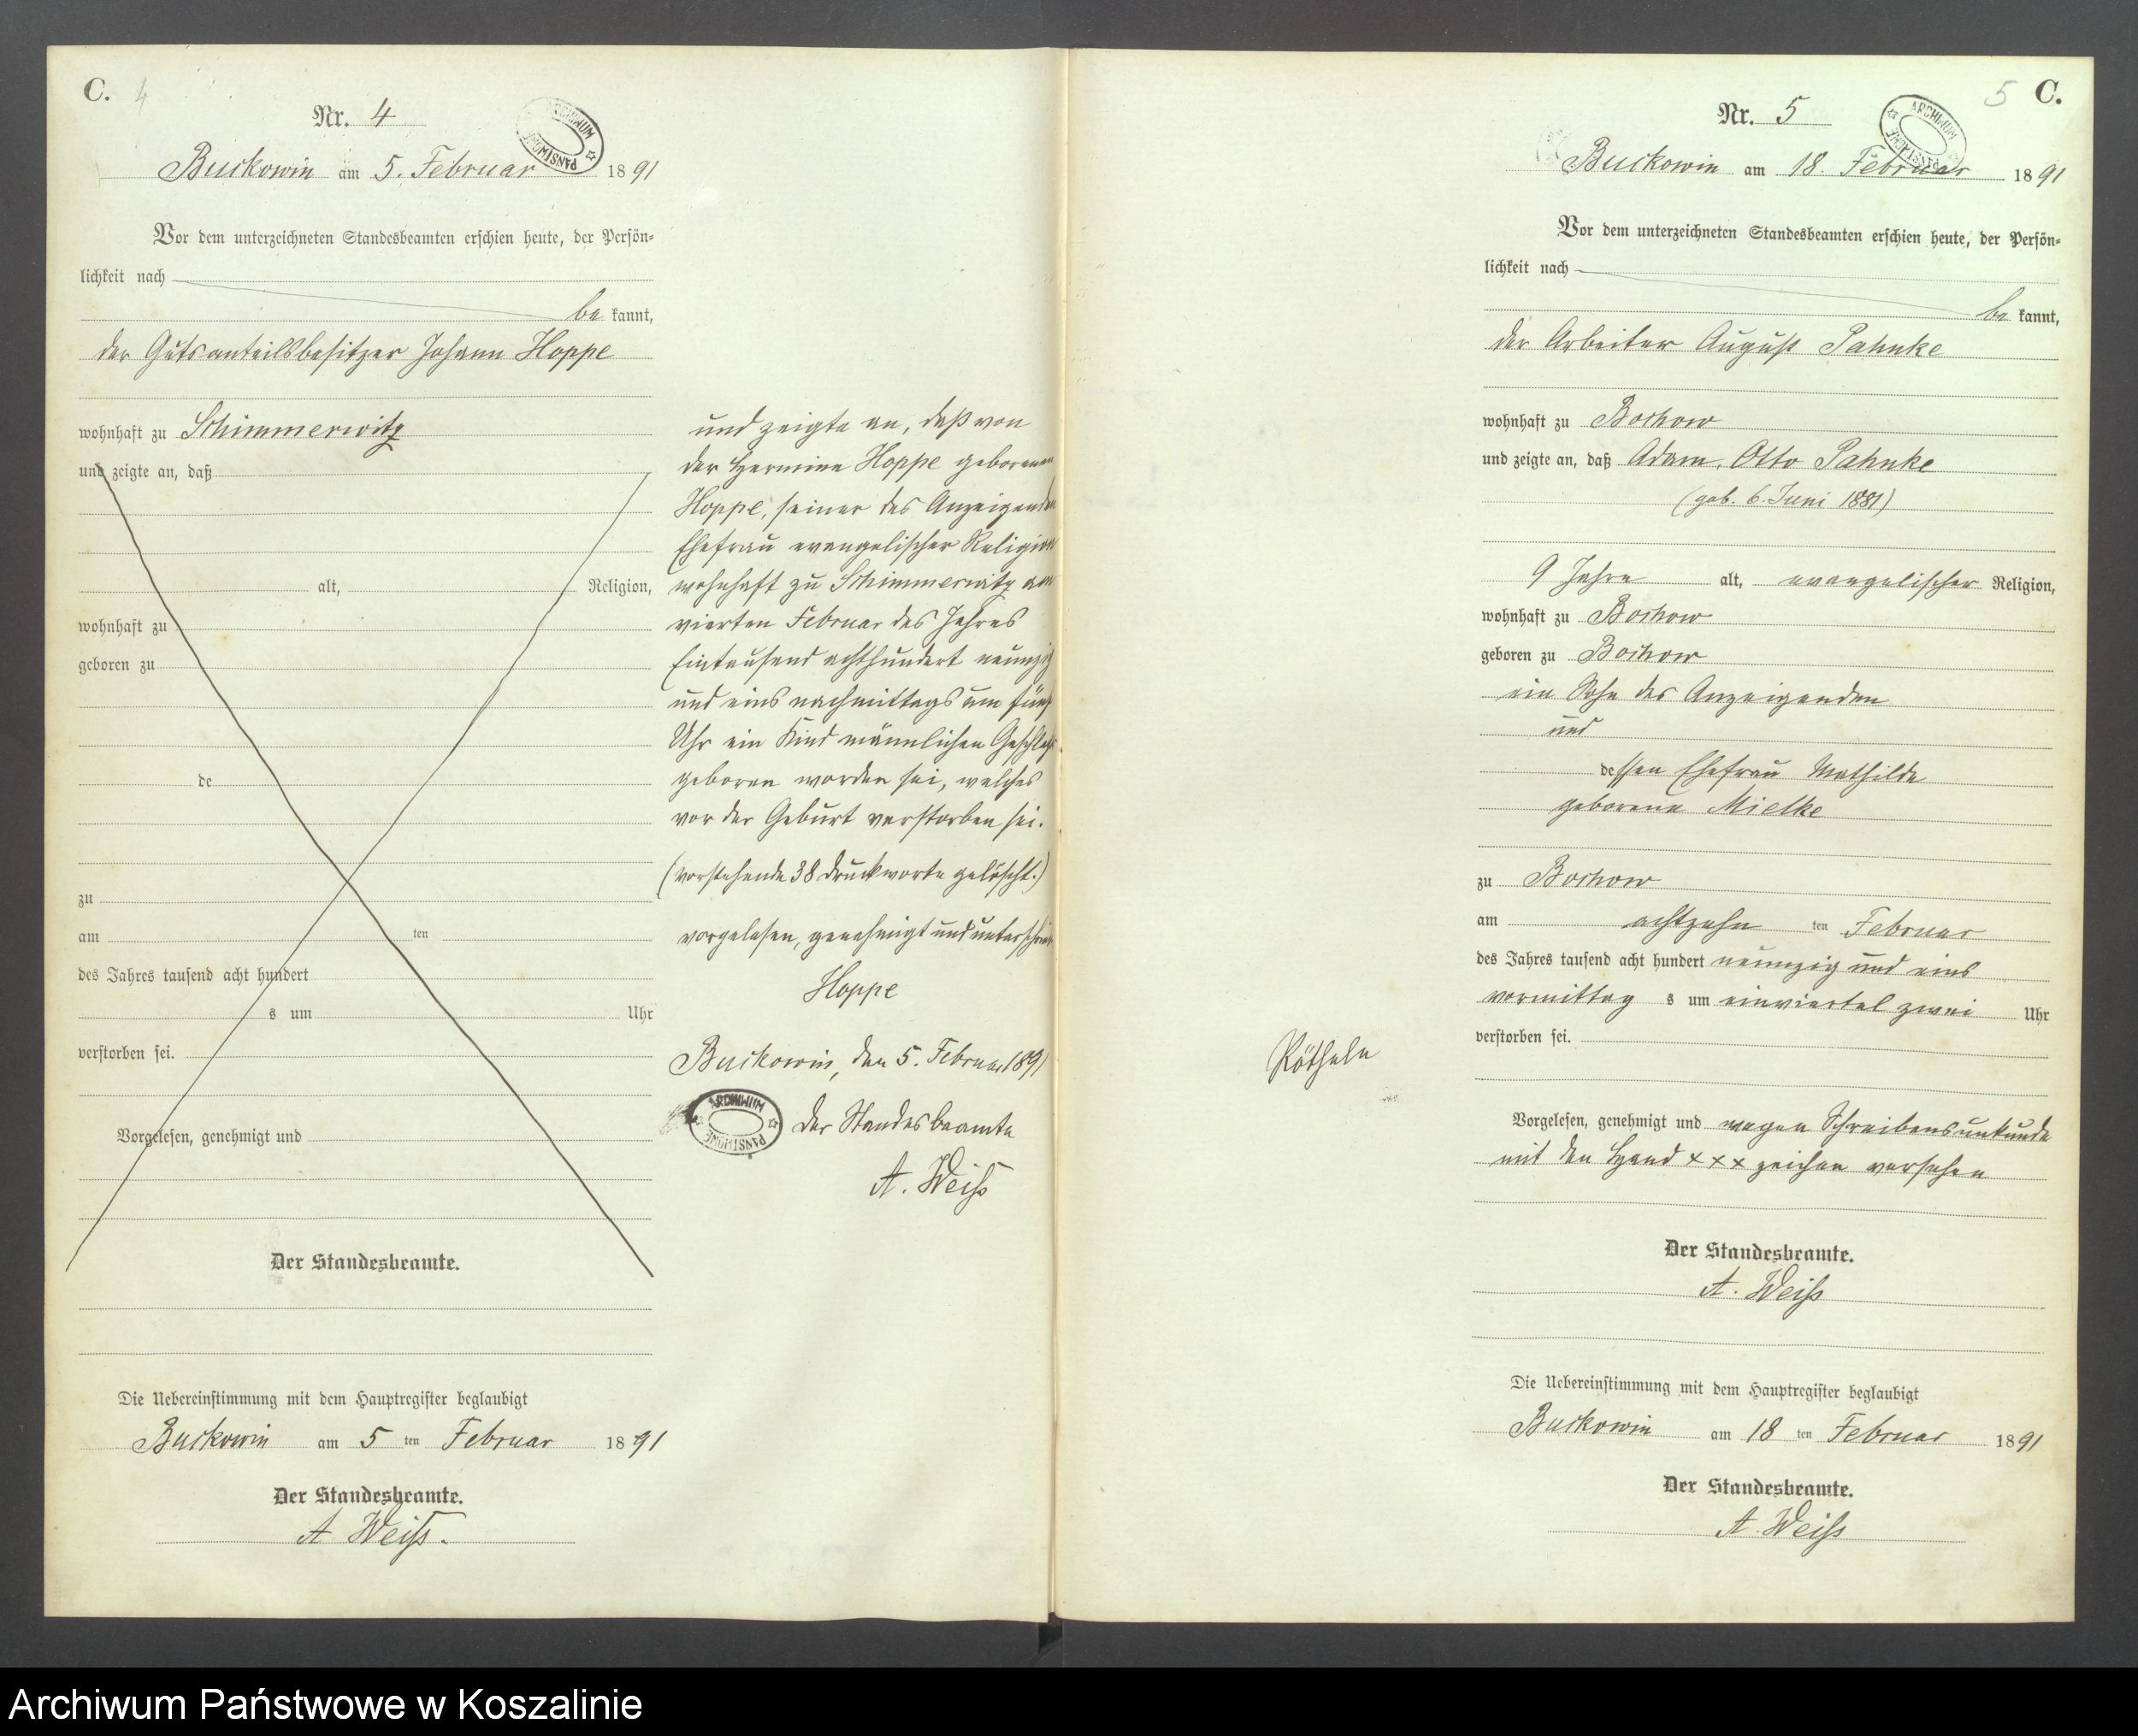 C. 4
Nr. 4
ARCHIWUM PAŃSTWOWE
Buckowin am 5. Februar 1891
Vor dem unterzeichneten Standesbeamten erschien heute, der Persön-
lichkeit nach
be kannt,
der Gutsanteilsbesitzer Johann Hoppe
wohnhaft zu Schimmerwitz
und zeigte an, daß
alt, Religion,
wohnhaft zu
geboren zu
de
zu
am ten
des Jahres tausend acht hundert
s um Uhr
verstorben sei.
Vorgelesen, genehmigt und
Der Standesbeamte.
Die Uebereinstimmung mit dem Hauptregister beglaubigt
Buckowin am 5 ten Februar 1891
Der Standesbeamte.
A Weiß.
und zeigte an, daß von
der Hermine Hoppe geborenen
Hoppe, seiner des Anzeigenden
Ehefrau evangelischer Religion
wohnhaft zu Schimmerwitz am
vierten Februar des Jahres
Eintausend achthundert neunzig
und eins nachmittags um fünf
Uhr ein Kind männlichen Geschlechts
geboren worden sei, welches
vor der Geburt verstorben sei.
(vorstehende 38 Druckworte gelöscht.)
vorgelesen, genehmigt und unterschrieben
Hoppe
Buckowin, den 5. Februar 1891
ARCHIWUM PAŃSTWOWE
Der Standesbeamte
A. Weiß
5 C.
Nr. 5
ARCHIWUM PAŃSTWOWE
Buckowin am 18. Februar 1891
Vor dem unterzeichneten Standesbeamten erschien heute, der Persön-
lichkeit nach
be kannt,
der Arbeiter August Pahnke
wohnhaft zu Bochow
und zeigte an, daß Adam, Otto Pahnke
(geb. 6. Juni 1881)
9 Jahre alt, evangelischer Religion,
wohnhaft zu Bochow
geboren zu Bochow
ein Sohn des Anzeigenden
und
dessen Ehefrau Mathilde
geborene Mielke
zu Bochow
am achtzehn ten Februar
des Jahres tausend acht hundert neunzig und eins
vormittag s um einviertel zwei Uhr
verstorben sei.
Rötheln
Vorgelesen, genehmigt und wegen Schreibensunkunde
mit den Hand xxx zeichen versehen
Der Standesbeamte.
A. Weiß
Die Uebereinstimmung mit dem Hauptregister beglaubigt
Buckowin am 18 ten Februar 1891
Der Standesbeamte.
A. Weiß
Archiwum Państwowe w Koszalinie